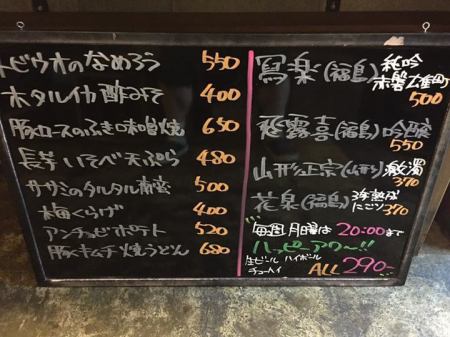 トビウオのなめろう 550
ホタルイカ酢みそ 400
豚ロースのふき味噌焼 650
長芋いそべ天ぷら 480
ササミのタルタル南蛮 500
梅くらげ 400
アンチョビポテト 520
豚キムチ焼うどん 680
寫楽(福島) 純吟
赤磐雄町
500
飛露喜(福島) 吟醸
550
山形正宗(山形)
370
花泉(福島)
にごり 370
毎週月曜は 20:00まで
ハッピーアワ〜!!
生ビール ハイボール
チューハイ ALL 290-